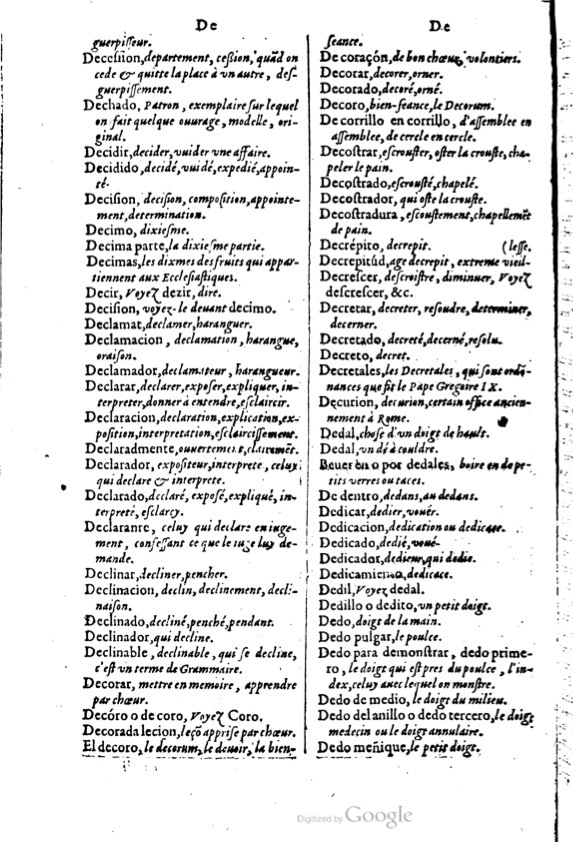 De
guerpisseur.
Decession, departement, cession, quãd on
cede & quitte la place à vn autre, des-
guerpissement.
Dechado, Patron, exemplaire sur lequel
on fait quelque ouurage, modelle, ori-
ginal.
Decidir, decider, vuider vne affaire.
Decidido, decidé, vuidé, expedié, appoin-
té.
Decision, decision, composition, appointe-
ment, determination.
Decimo, dixiesme.
Decima parte, la dixiesme partie.
Decimas, les dixmes des fruits qui appar-
tiennent aux Ecclesiastiques.
Decir, Voyez dezir, dire.
Decision, voyez-le deuant decimo.
Declamat, declamer, haranguer.
Declamacion, declamation, harangue,
oraison.
Declamador, declamateur, harangueur.
Declarar, declarer, exposer, expliquer, in-
terpreter, donner à entendre, esclaircir.
Declaracion, declaration, explication, ex-
position, interpretation, esclaircissement.
Declaradmente, ouuertement, clairemẽt.
Declarador, expositeur, interprete, celuy
qui declare & interprete.
Declarado, declaré, exposé, expliqué, in-
terpreté, esclarcy.
Declarante, celuy qui declare en iuge-
ment, confessant ce que le iuge luy de-
mande.
Declinar, decliner, pencher.
Declinacion, declin, declinement, decli-
naison.
Declinado, decliné, penché, pendant.
Declinador, qui decline.
Declinable, declinable, qui se decline,
c'est vn terme de Grammaire.
Decorar, mettre en memoire, apprendre
par chœur.
Decóro o de coro, Voyez Coro.
Decorada lecion, leçõ apprise par chœur.
El decoro, le decorum, le deuoir, la bien-
De
seance.
De coraçon, de bon chœur, volontiers.
Decorar, decorer, orner.
Decorado, decoré, orné.
Decoro, bien-seance, le Decorum.
De corrillo en corrillo, d'assemblee en
assemblee, de cercle en cercle.
Decostrar, escrouster, oster la crouste, cha-
peler le pain.
Decostrado, escrousté, chapelé.
Decostrador, qui oste la crouste.
Decostradura, escoustement, chapellemẽt
de pain.
Decrépito, decrepit. (lesse.
Decrepitúd, age decrepit, extreme vieil-
Decrescer, descroistre, diminuer, Voyez
descrescer, &c.
Decretar, decreter, resoudre, determiner,
decerner.
Decretado, decreté, decerné, resolu.
Decreto, decret.
Decretales, les Decretales, qui sont ordõ-
nances que fit le Pape Gregoire IX.
Decurion, decurion, certain office ancien-
nement à Rome.
Dedal, chose d'vn doigt de hault.
Dedal, vn dé à couldre.
Beuer en o por dedales, boire en de pe-
tits verres ou taces.
De dentro, dedans, au dedans.
Dedicar, dedier, vouër.
Dedicacion, dedication ou dedicace.
Dedicado, dedié, voué.
Dedicador, dedieur, qui dedie.
Dedicamiento, dedicace.
Dedil, Voyez dedal.
Dedillo o dedito, vn petit doigt.
Dedo, doigt de la main.
Dedo pulgar, le poulce.
Dedo para demonstrar, dedo prime-
ro, le doigt qui est pres du poulce, l'in-
dex, celuy auec lequel on monstre.
Dedo de medio, le doigt du milieu.
Dedo del anillo o dedo tercero, le doigt
medecin ou le doigt annulaire.
Dedo meñique, le petit doigt.
Digitized by Google